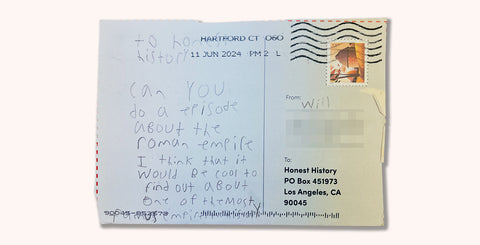 to honest
history
HARTFORD CT 060
11 JUN 2024 PM 2 L
can YOU
do a episode
about the
roman empire
I think that it
would be cool to
find out about
one of the most
empires
From:
Will
To:
Honest History
PO Box 451973
Los Angeles, CA
90045